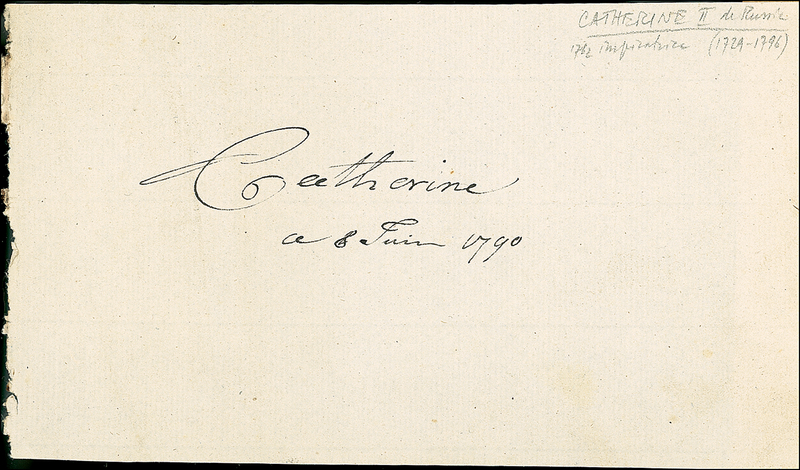 CATHERINE II de Russia
1762 imperatrice (1729-1796)
Catherine
ce 8 Juin 1790